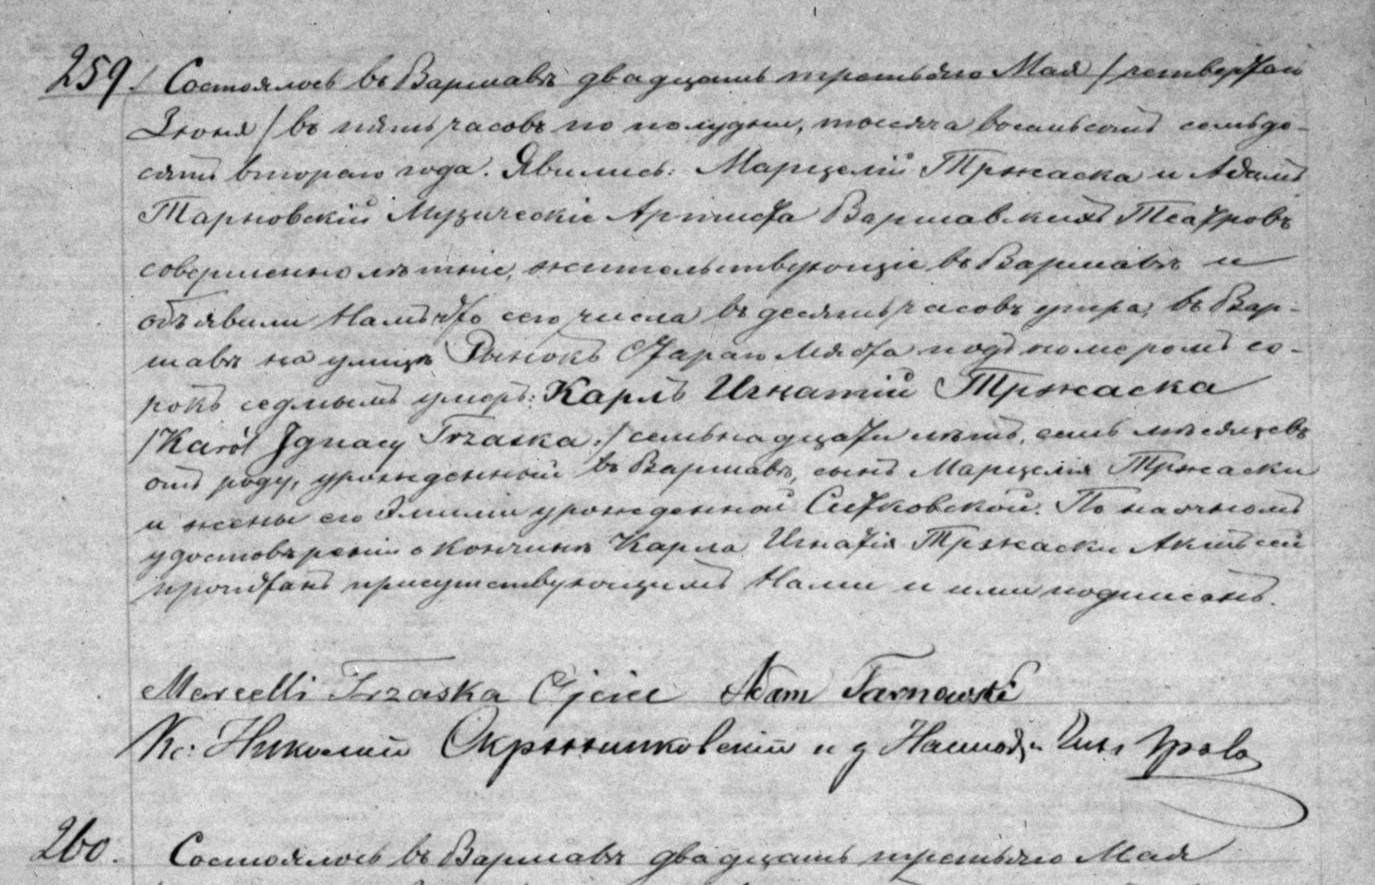 259./ Состоялось въ Варшавѣ двадцать третьяго Мая /четвертаго
Іюня/ въ пять часовъ по полудни, тысяча восемьсотъ семьде-
сятъ втораго года. Явились: Марцелій Тржаска и Адамъ
Тарновскій Музыческіе Артисты Варшавскихъ Театровъ
совершеннолѣтніе, жительствующіе въ Варшавѣ и
объявили Намъ что сего числа въ десять часовъ утра, въ Вар-
шавѣ на улицѣ Рынокъ Стараго Мяста подъ номеромъ со-
рокъ седмымъ умеръ: Карлъ Игнатій Тржаска
/Karól Ignacy Trzaska/ семьнадцати лѣтъ, семь мѣсяцевъ
отъ роду, урожденный въ Варшавѣ, сынъ Марцелія Тржаски
и жены его Эмиліи урожденной Ситковской. По наочномъ
удостовѣреніи о кончинѣ Карла Игнатія Тржаски Актъ сей
прочитанъ присутствующимъ Нами и ими подписанъ.
Marcelli Trzaska Ojciec Adam Tarnowski
Кс: Николай и д Чин Гр
260. Состоялось въ Варшавѣ двадцать третьяго Мая